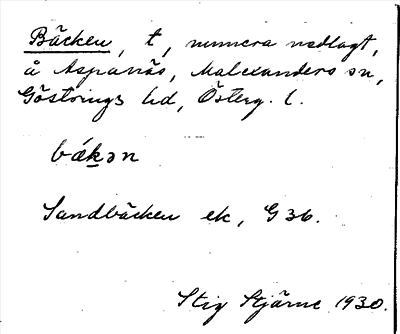 Bäcken, t, numera nedlagt,
å Aspanäs, Malexanders sn,
Göstrings hd, Österg. l.
bǽk̠ən
Sandbäcken ek, G 36.
Stig Stjärne 1930.